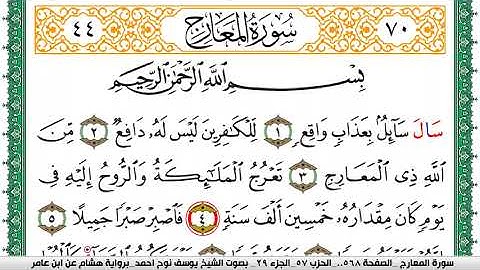 ٤٤ سُورَةُ المَعَارِجِ ٧٠
بِسْمِ اللَّهِ الرَّحْمَٰنِ الرَّحِيمِ
سَالَ سَآئِلُۢ بِعَذَابٖ وَاقِعٖ ١ لِّلۡكَٰفِرِينَ لَيۡسَ لَهُۥ دَافِعٞ ٢ مِّنَ
ٱللَّهِ ذِي ٱلۡمَعَارِجِ ٣ تَعۡرُجُ ٱلۡمَلَٰٓئِكَةُ وَٱلرُّوحُ إِلَيۡهِ فِي
يَوۡمٖ كَانَ مِقۡدَارُهُۥ خَمۡسِينَ أَلۡفَ سَنَةٖ ٤ فَٱصۡبِرۡ صَبۡرٗا جَمِيلًا ٥
سورة المعارج_ الصفحة ٥٦٨_ الحزب ٥٧_ الجزء ٢٩_ بصوت الشيخ يوسف نوح احمد_ برواية هشام عن ابن عامر